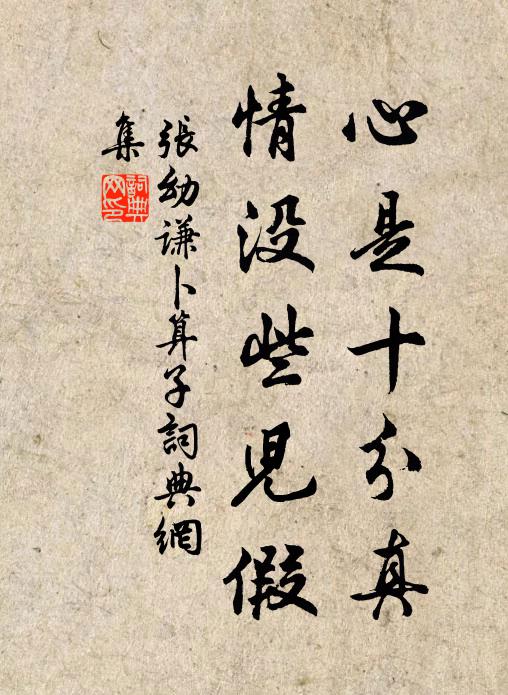 心是十分真
情没些兒假
張幼謙卜算子詞典網
集
詞典
网印